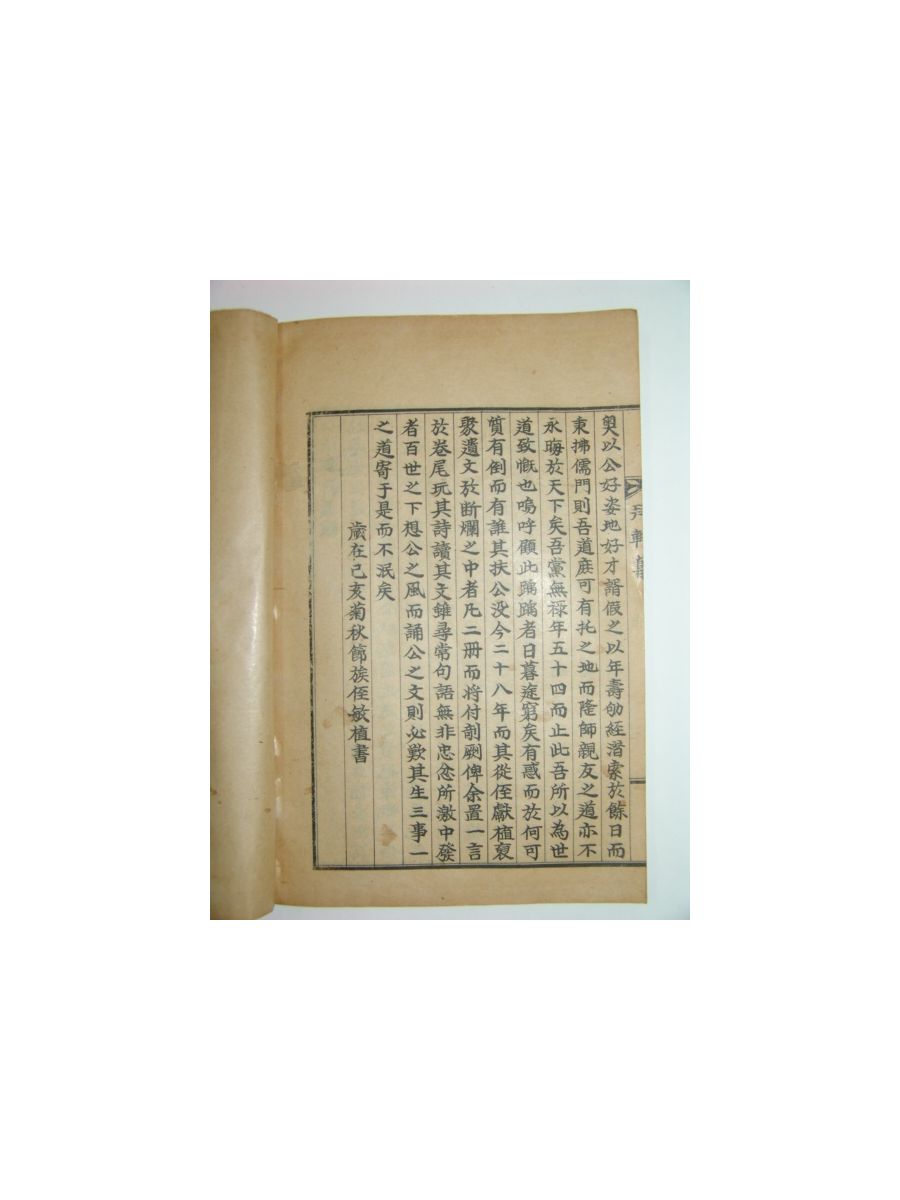 奧以公好姿地好才諝假之以年壽劬經潛索於餘日而
秉拂儒門則吾道庶可有托之地而隆師親友之道亦不
永晦於天下矣吾黨無祿年五十四而止此吾所以為世
道致慨也嗚呼顧此踽踽者日暮途窮矣有惑而於何可
質有倒而有誰其扶公沒今二十八年而其從侄獻植裒
聚遺文於斷爛之中者凡二冊而將付剞劂俾余置一言
於卷尾玩其詩讀其文雖尋常句語無非忠忿所激中發
者百世之下想公之風而誦公之文則必歎其生三事一
之道寄于是而不泯矣
歲在己亥菊秋節族侄敏植書
軒集